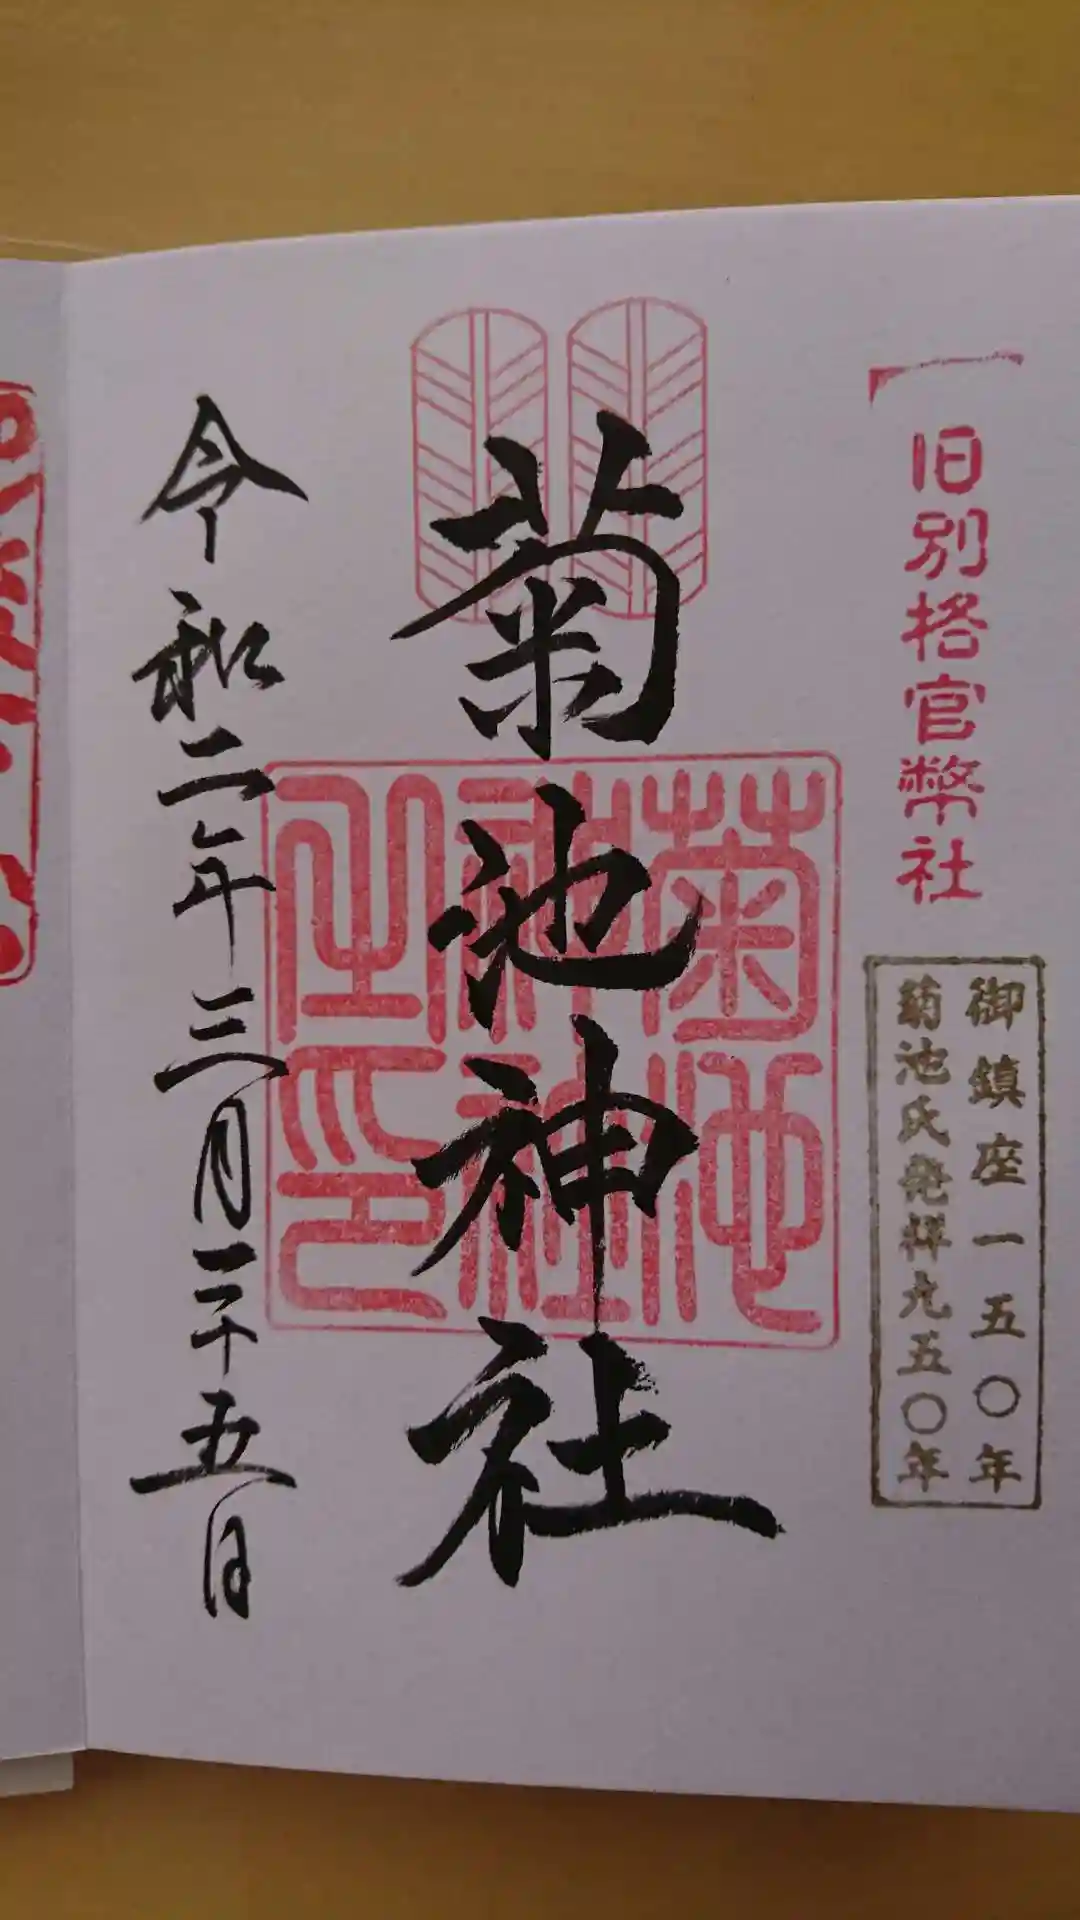 旧別格官幣社
御鎮座一五〇年
菊池氏発祥九五〇年
菊池神社
菊池神社之印
令和二年三月二十五日